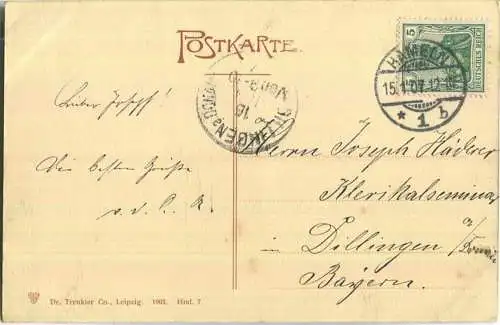 POSTKARTE
5
DEUTSCHES REICH
HAMELN
15.1.07.12
* 1 b
DILLINGEN a. DONAU
16
Lieber Josef!
Die besten Grüße
v. d. C. R.
Herrn Joseph Häderer
Klerikalseminar
in Dillingen a/Donau
Bayern.
Dr. Trenkler Co., Leipzig. 1903. Hml. 7